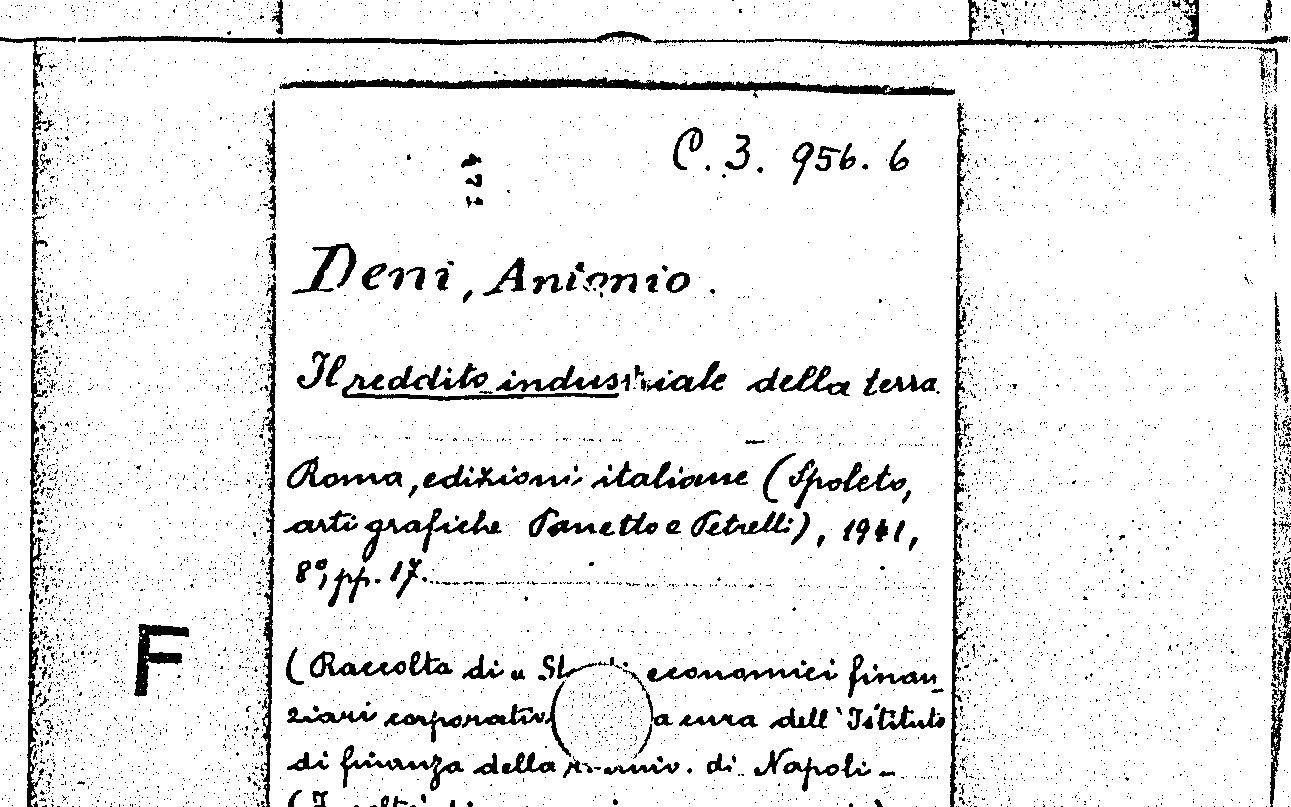 C. 3. 956. 6
471
Deni, Antonio.
Il reddito industriale della terra
Roma, edizioni italiane (Spoleto,
arti grafiche Panetto e Petrelli), 1941,
8°, pp. 17.
F
(Raccolta di economici finan-
ziari corporativi a cura dell'Istituto
di finanza della univ. di Napoli -